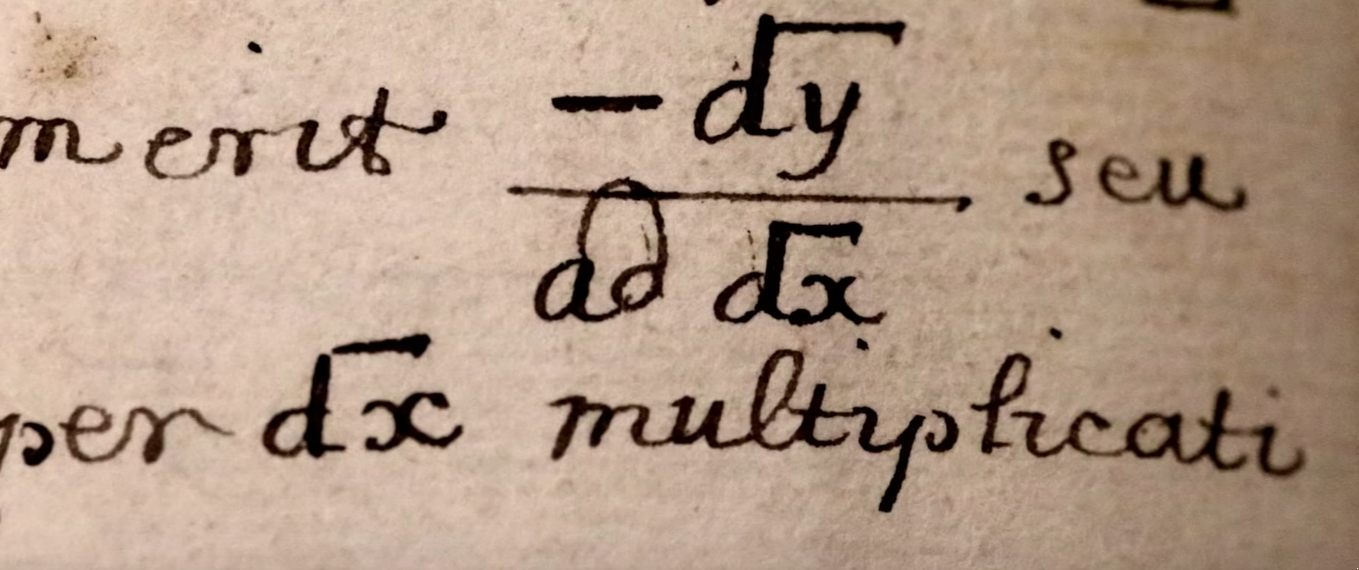 m erit −d͞y / ad d͞x seu
per d͞x multiplicati